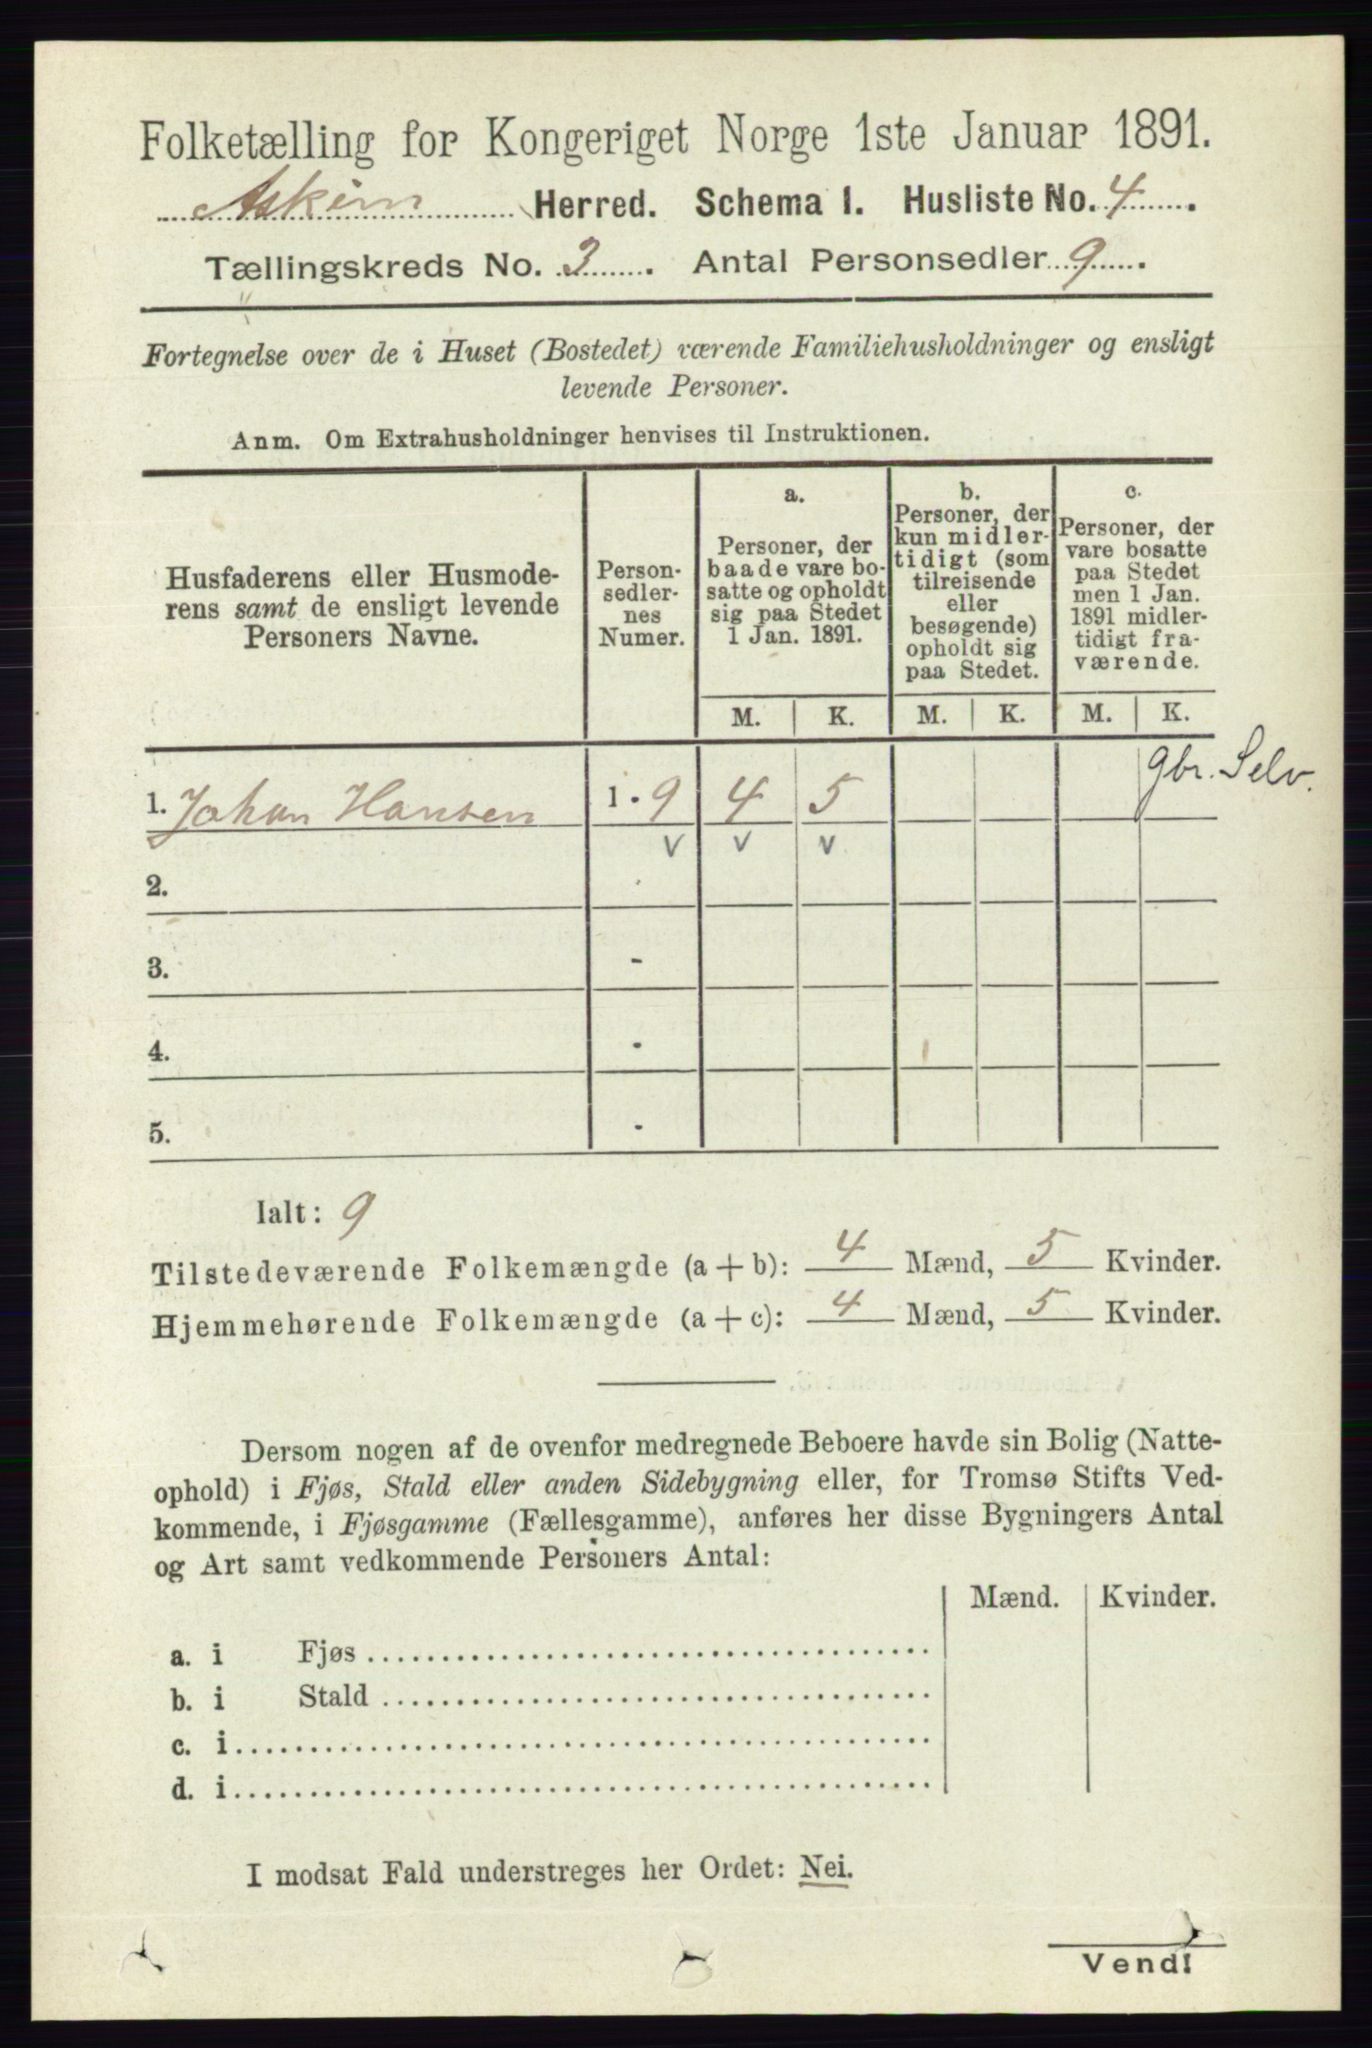 Folketælling for Kongeriget Norge 1ste Januar 1891.
Askim Herred. Schema 1. Husliste No. 4.
Tællingskreds No. 3. Antal Personsedler 9.
Fortegnelse over de i Huset (Bostedet) værende Familiehusholdninger og ensligt
levende Personer.
Anm. Om Extrahusholdninger henvises til Instruktionen.
Husfaderens eller Husmode-
rens samt de ensligt levende
Personers Navne.
Person-
sedler-
nes
Numer.
a.
Personer, der
baade vare bo-
satte og opholdt
sig paa Stedet
1 Jan. 1891.
b.
Personer, der
kun midler-
tidigt (som
tilreisende
eller
besøgende)
opholdt sig
paa Stedet.
c.
Personer, der
vare bosatte
paa Stedet
men 1 Jan.
1891 midler-
tidigt fra-
værende.
M. K. M. K. M. K.
1. Johan Hansen 1 · 9 4 5 gbr. Selv.
v v v
2. ·
3. -
4. ·
5. ·
Ialt: 9
Tilstedeværende Folkemængde (a + b): 4 Mænd, 5 Kvinder.
Hjemmehørende Folkemængde (a + c): 4 Mænd, 5 Kvinder.
Dersom nogen af de ovenfor medregnede Beboere havde sin Bolig (Natte-
ophold) i Fjøs, Stald eller anden Sidebygning eller, for Tromsø Stifts Ved-
kommende, i Fjøsgamme (Fællesgamme), anføres her disse Bygningers Antal
og Art samt vedkommende Personers Antal:
Mænd. Kvinder.
a. i Fjøs
b. i Stald
c. i
d. i
I modsat Fald understreges her Ordet: Nei.
Vend!